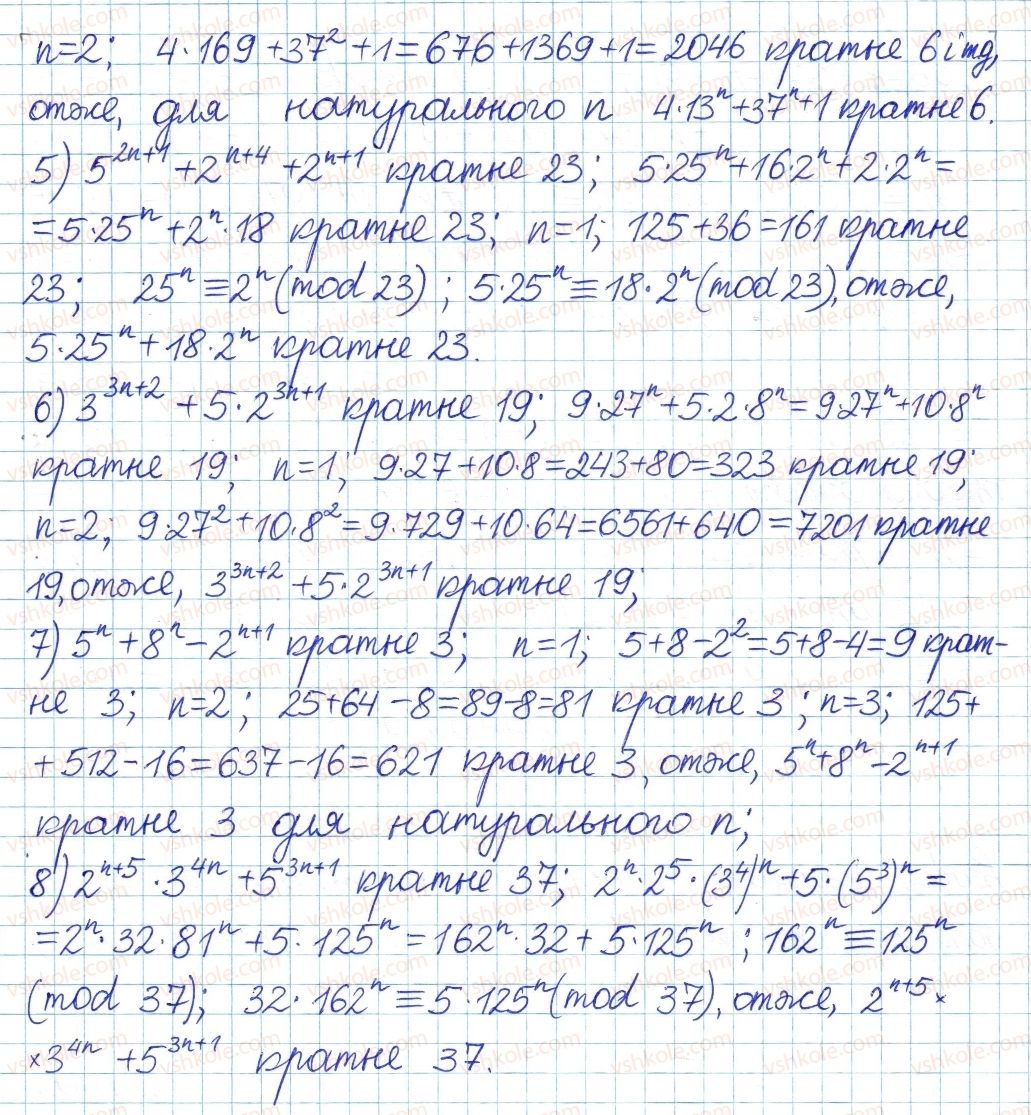 n=2; 4·169+37²+1=676+1369+1=2046 кратне 6 і тд,
отже, для натурального n 4·13ⁿ+37ⁿ+1 кратне 6.
5) 5^{2n+1}+2^{n+4}+2^{n+1} кратне 23; 5·25ⁿ+16·2ⁿ+2·2ⁿ=
=5·25ⁿ+2ⁿ·18 кратне 23; n=1; 125+36=161 кратне
23; 25ⁿ≡2ⁿ(mod 23); 5·25ⁿ≡18·2ⁿ(mod 23), отже,
5·25ⁿ+18·2ⁿ кратне 23.
6) 3^{3n+2}+5·2^{3n+1} кратне 19; 9·27ⁿ+5·2·8ⁿ=9·27ⁿ+10·8ⁿ
кратне 19; n=1; 9·27+10·8=243+80=323 кратне 19;
n=2; 9·27²+10·8²=9·729+10·64=6561+640=7201 кратне
19, отже, 3^{3n+2}+5·2^{3n+1} кратне 19;
7) 5ⁿ+8ⁿ-2^{n+1} кратне 3; n=1; 5+8-2²=5+8-4=9 крат-
не 3; n=2; 25+64-8=89-8=81 кратне 3; n=3; 125+
+512-16=637-16=621 кратне 3, отже, 5ⁿ+8ⁿ-2^{n+1}
кратне 3 для натурального n;
8) 2^{n+5}·3^{4n}+5^{3n+1} кратне 37; 2ⁿ·2⁵·(3⁴)ⁿ+5·(5³)ⁿ=
=2ⁿ·32·81ⁿ+5·125ⁿ=162ⁿ·32+5·125ⁿ; 162ⁿ≡125ⁿ
(mod 37); 32·162ⁿ≡5·125ⁿ(mod 37), отже, 2^{n+5}×
×3^{4n}+5^{3n+1} кратне 37.